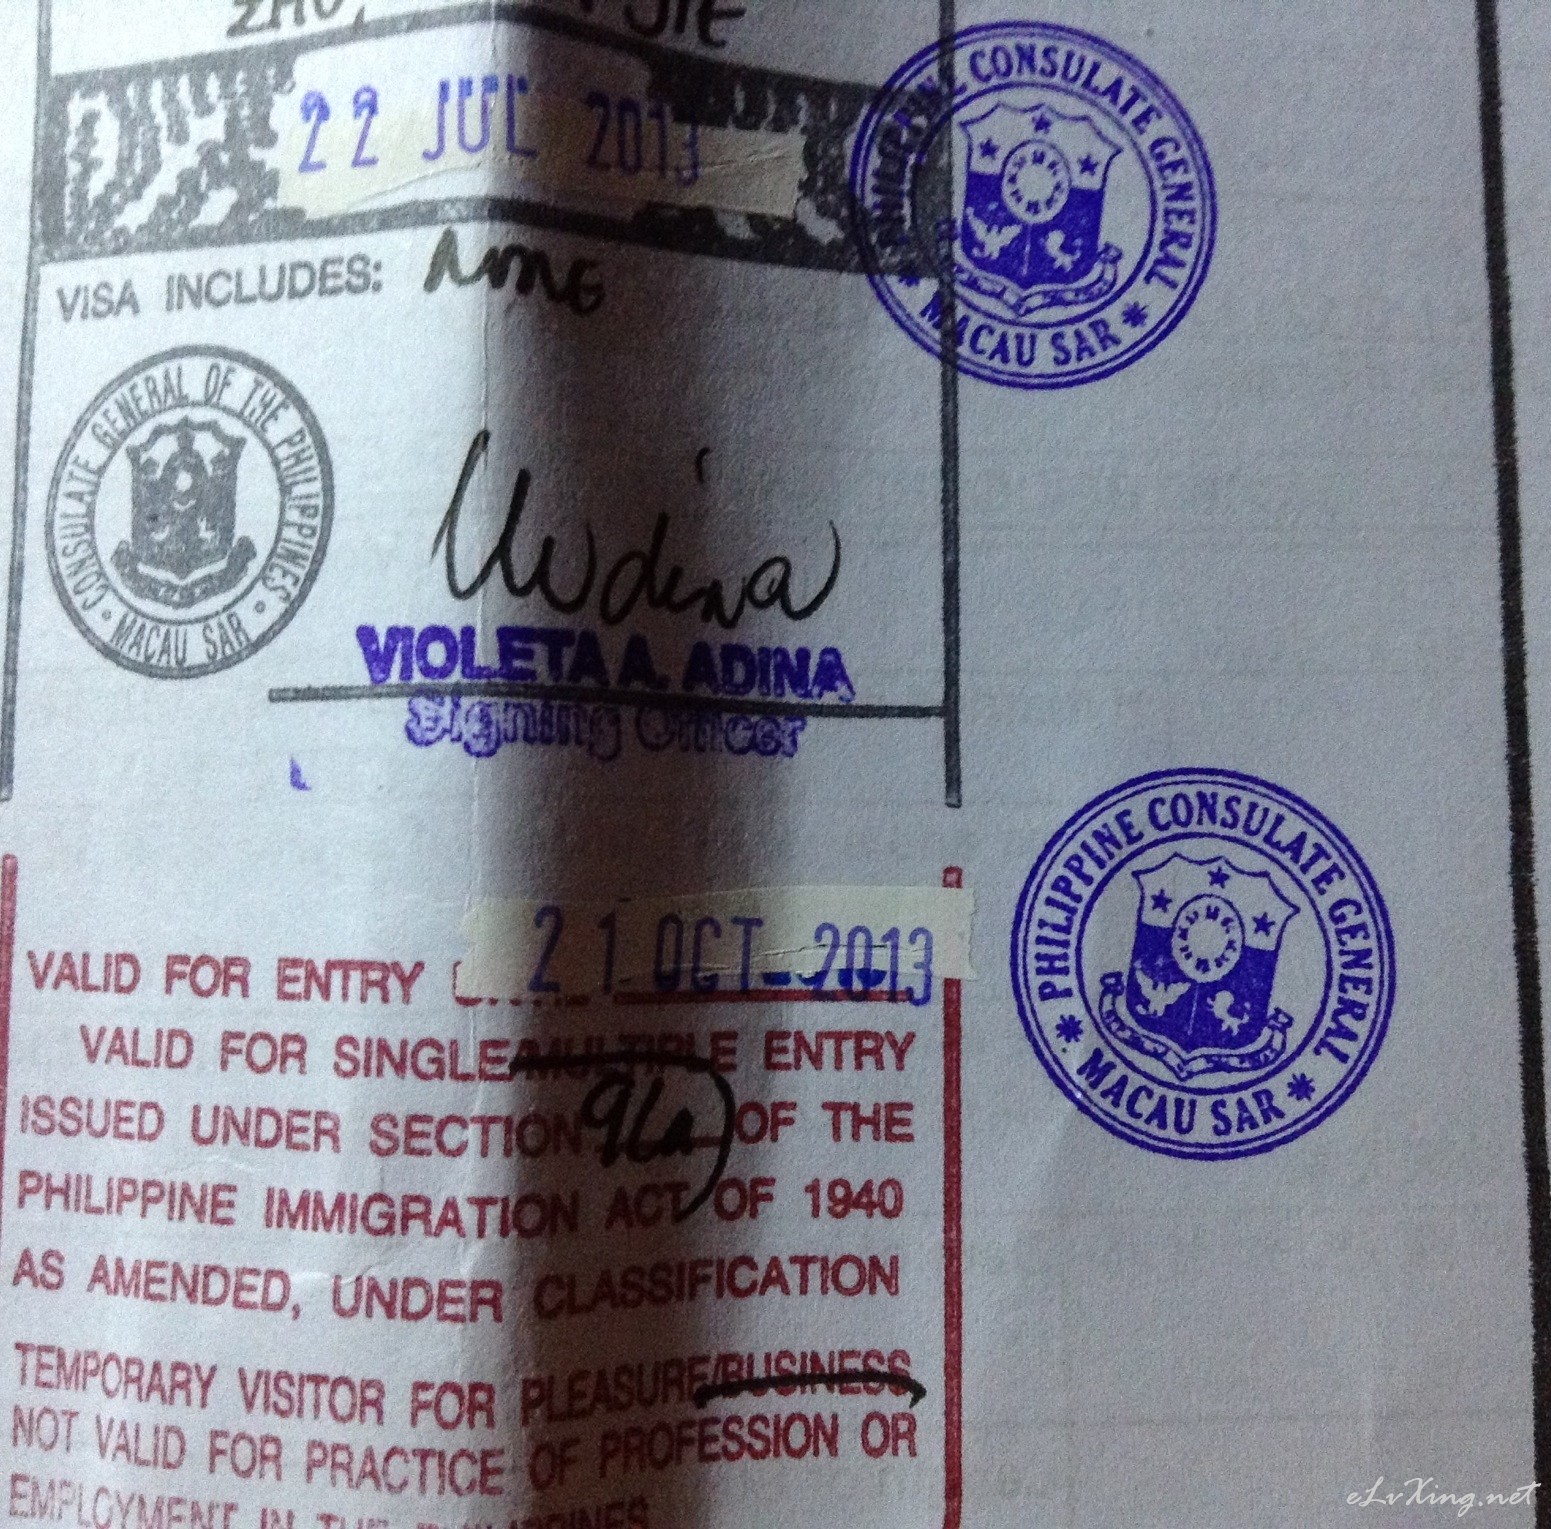 ZHU, JIE
22 JUL 2013
PHILIPPINE CONSULATE GENERAL
MACAU SAR
VISA INCLUDES: NONE
CONSULATE GENERAL OF THE PHILIPPINES
MACAU SAR
VIOLETA A. ADINA
Signing Officer
21 OCT 2013
VALID FOR ENTRY
VALID FOR SINGLE/MULTIPLE ENTRY
ISSUED UNDER SECTION 9(a) OF THE
PHILIPPINE IMMIGRATION ACT OF 1940
AS AMENDED, UNDER CLASSIFICATION
TEMPORARY VISITOR FOR PLEASURE/BUSINESS
NOT VALID FOR PRACTICE OF PROFESSION OR
EMPLOYMENT IN THE PHILIPPINES
PHILIPPINE CONSULATE GENERAL
MACAU SAR
eLvXing.net